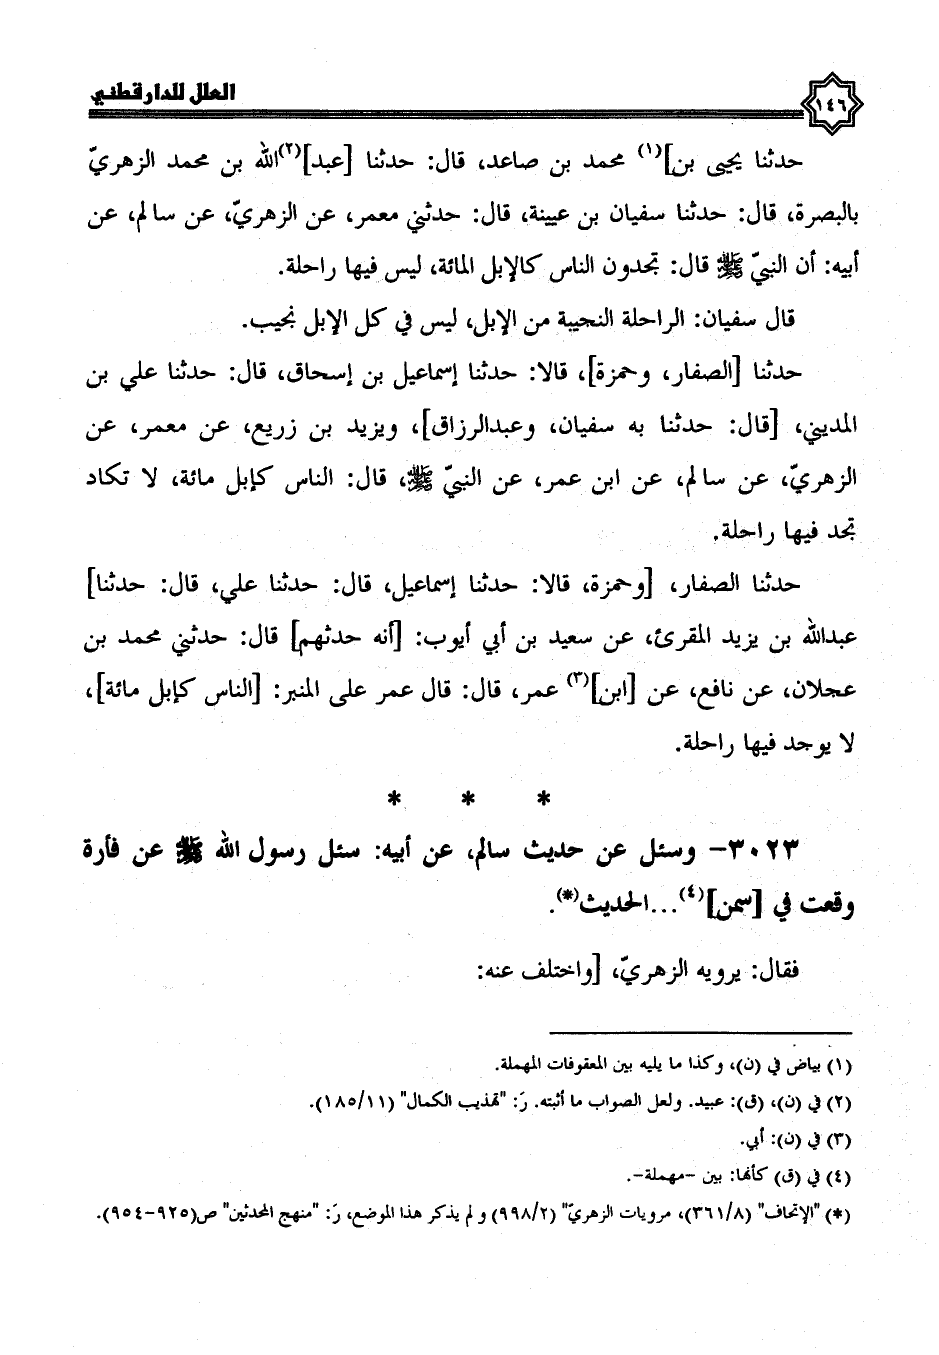 العلل للدارقطني
١٤٦
حدثنا يحيى بن](١) محمد بن صاعد، قال: حدثنا [عبد](٢)الله بن محمد الزهريّ
بالبصرة، قال: حدثنا سفيان بن عيينة، قال: حدثني معمر، عن الزهريّ، عن سالم، عن
أبيه: أن النبيّ ﷺ قال: تجدون الناس كالإبل المائة، ليس فيها راحلة.
قال سفيان: الراحلة النجيبة من الإبل، ليس في كل الإبل نجيب.
حدثنا [الصفار، وحمزة]، قالا: حدثنا إسماعيل بن إسحاق، قال: حدثنا علي بن
المديني، [قال: حدثنا به سفيان، وعبدالرزاق]، ويزيد بن زريع، عن معمر، عن
الزهريّ، عن سالم، عن ابن عمر، عن النبيّ ﷺ، قال: الناس كإبل مائة، لا تكاد
تجد فيها راحلة.
حدثنا الصفار، [وحمزة، قالا: حدثنا إسماعيل، قال: حدثنا علي، قال: حدثنا]
عبدالله بن يزيد المقرئ، عن سعيد بن أبي أيوب: [أنه حدثهم] قال: حدثني محمد بن
عجلان، عن نافع، عن [ابن](٣) عمر، قال: قال عمر على المنبر: [الناس كإبل مائة]،
لا يوجد فيها راحلة.
* * *
٣٠٢٣- وسئل عن حديث سالم، عن أبيه: سئل رسول الله ﷺ عن فأرة
وقعت في [سمن](٤)...الحديث(*).
فقال: يرويه الزهريّ، [واختلف عنه:
(١) بياض في (ن)، وكذا ما يليه بين المعقوفات المهملة.
(٢) في (ن)، (ق): عبيد. ولعل الصواب ما أثبته. رَ: "تهذيب الكمال" (١١/‏١٨٥).
(٣) في (ن): أبي.
(٤) في (ق) كأنها: بين -مهملة-.
(*) "الإتحاف" (٨/‏٣٦١)، مرويات الزهريّ" (٢/‏٩٩٨) و لم يذكر هذا الموضع، رَ: "منهج المحدثين" ص(٩٢٥-٩٥٤).